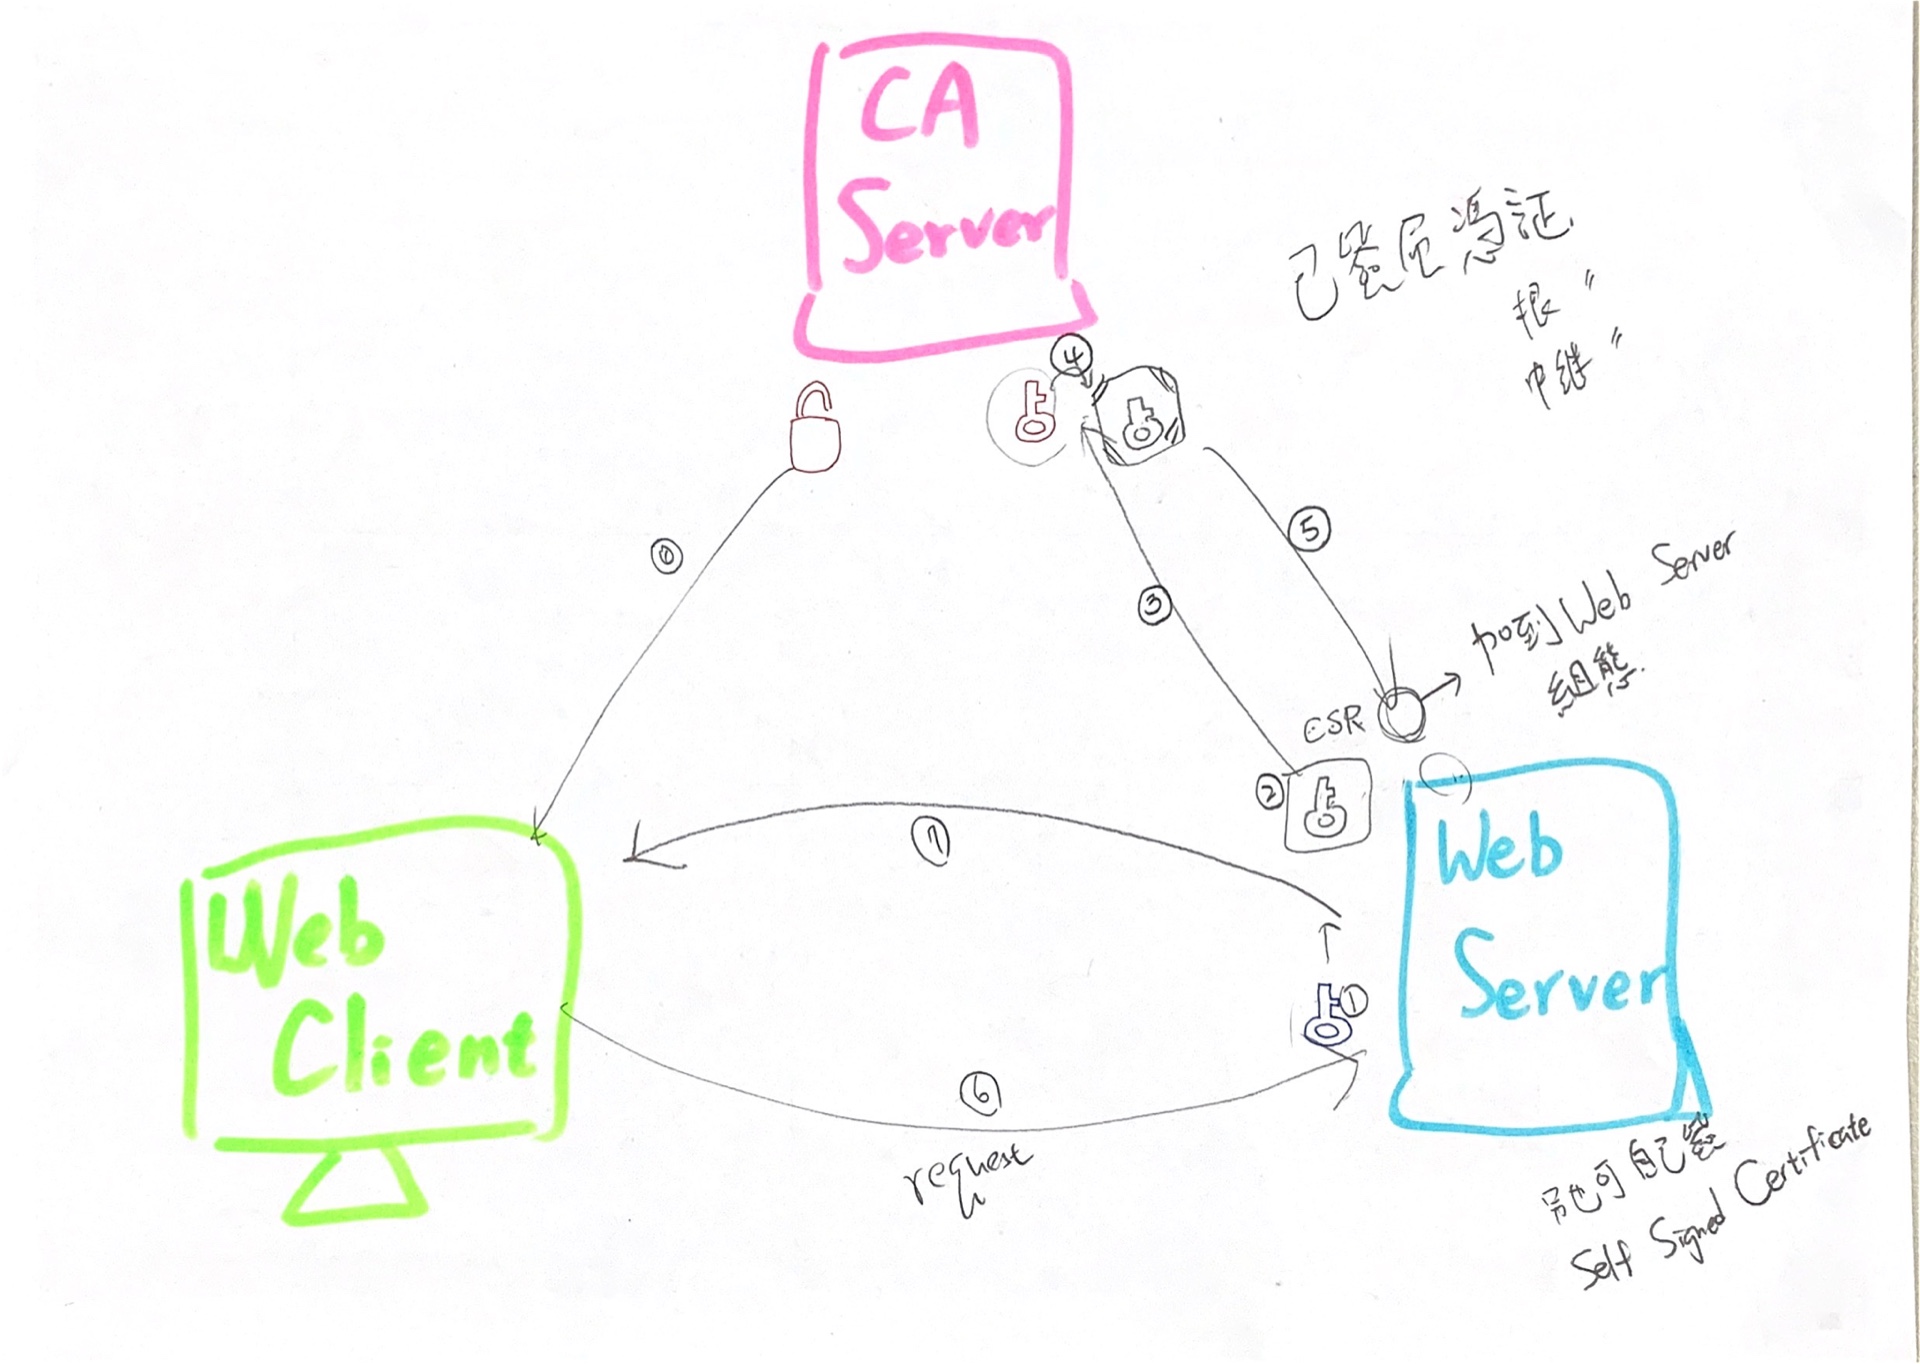 CA
Server
已簽屆憑証
根〃
中継〃
④
⓪
⑤
③
加到 Web Server
組態
CSR
②
Web
Server
⑦
Web
Client
①
⑥
request
另也可自己簽
Self Signed Certificate